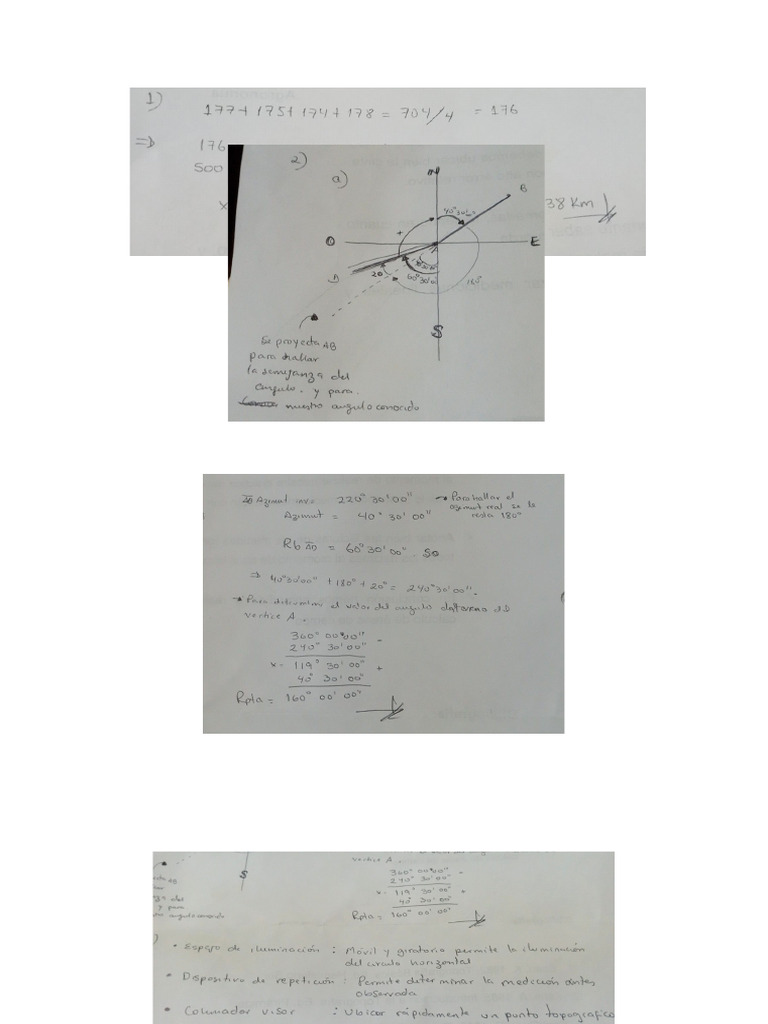 1)
177+ 175+ 174+ 178 = 704/4 = 176
=D 176
500
x
38 Km
2)
a)
N
B
40°30'00"
+
O
A
E
D
20
60°30'00"
180°
S
Se proyecta AB
para hallar
la semejanza del
angulo. y para
nuestro angulo conocido
Azimut inv= 220° 30' 00" → Para hallar el
azimut real se le
resta 180°
Azimut = 40° 30' 00"
Rb AD = 60° 30' 00" SO
⇒ 40°30'00" + 180° + 20° = 240°30'00".
→ Para determinar el valor del angulo del
vertice A.
360° 00' 00" -
240° 30' 00"
x= 119° 30' 00" +
40° 30' 00"
Rpta = 160° 00' 00"
vertice A.
S
360° 00' 00" -
240° 30' 00"
x= 119° 30' 00" +
40° 30' 00"
Rpta = 160° 00' 00"
y para
angulo conocido
• Espejo de iluminación : Móvil y giratorio permite la iluminación
del circulo horizontal
• Dispositivo de repetición : Permite determinar la medición antes
observada
• Colimador visor : Ubicar rápidamente un punto topografico